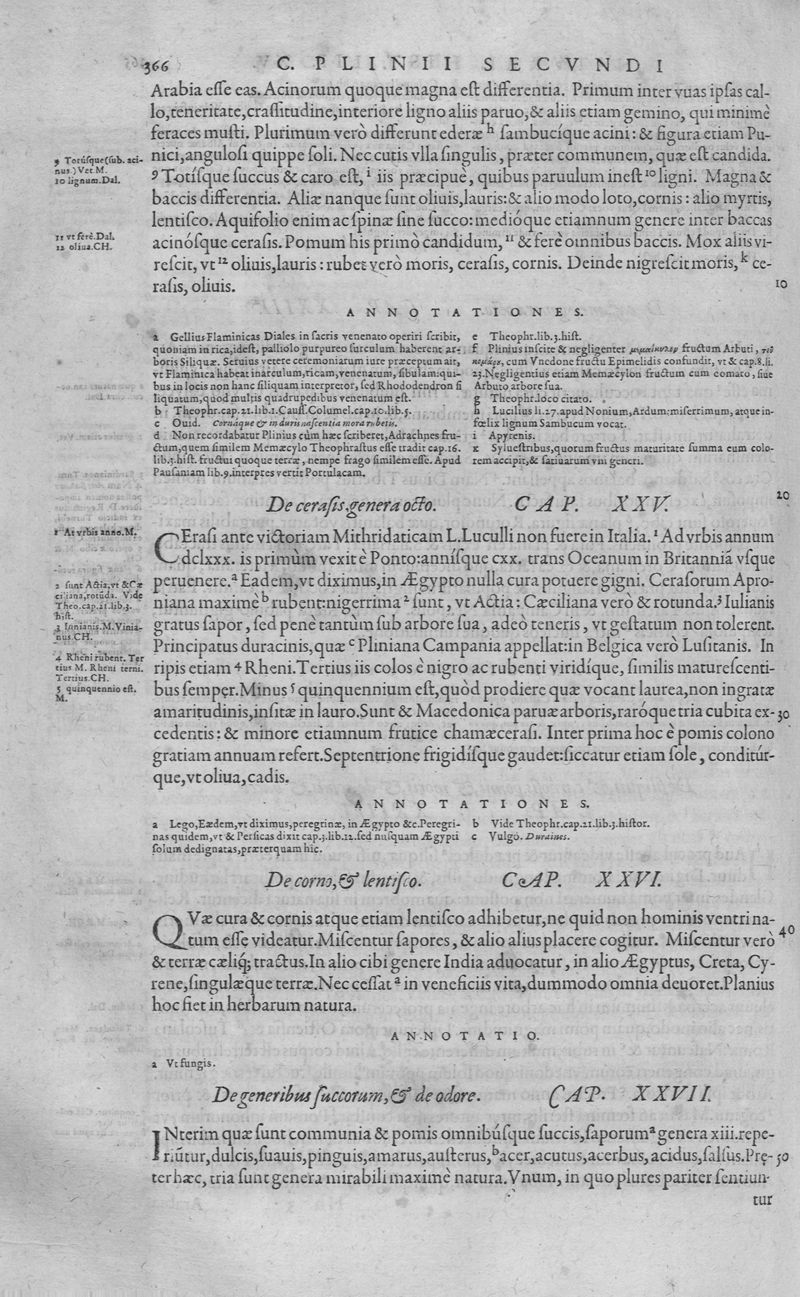 366
C. PLINII SECVNDI
Arabia eſſe eas. Acinorum quoque magna eſt differentia. Primum inter vuas ipſas cal-
lo,teneritate,craſſitudine,interiore ligno aliis paruo,& aliis etiam gemino, qui minimè
feraces muſti. Plurimum verò differunt ederæ h ſambucíque acini: & figura etiam Pu-
nici,anguloſi quippe ſoli. Nec cutis vlla ſingulis, præter communem, quæ eſt candida.
9 Totíſque ſuccus & caro eſt, i iis præcipuè, quibus paruulum ineſt 10 ligni. Magna &
baccis differentia. Aliæ nanque ſunt oliuis,lauris:& alio modo loto,cornis: alio myrtis,
lentiſco. Aquifolio enim ac ſpinæ ſine ſucco: medióque etiamnum genere inter baccas
acinóſque ceraſis. Pomum his primò candidum, 11 & ferè omnibus baccis. Mox aliis vi-
reſcit, vt 12 oliuis,lauris: rubet verò moris, ceraſis, cornis. Deinde nigreſcit moris, k ce-
raſis, oliuis.
9 Torúſque(ſub. aci-
nus) Vet M.
10 lignum.Dal.
11 vt ferè.Dal.
12 oliua.CH.
10
ANNOTATIONES.
a Gellius Flaminicas Diales in ſacris venenato operiri ſcribit,
quoniam in rica,ideſt, palliolo purpureo ſurculum haberent ar-
boris Siliquæ. Seruius vetere ceremoniarum iure præceptum ait,
vt Flaminica habeat inarculum,ricam,venenatum, fibulam:qui-
bus in locis non hanc ſiliquam interpretor, ſed Rhododendron ſi
liquatum,quòd multis quadrupedibus venenatum eſt.
b Theophr.cap.21.lib.1.Cauſſ.Columel.cap.10.lib.5.
c Ouid. Cornáque & in duris naſcentia mora rubetis.
d Non recordabatur Plinius cùm hæc ſcriberet,Adrachnes fru-
ctum,quem ſimilem Memæcylo Theophraſtus eſſe tradit cap.16.
lib.3.hiſt. fructui quoque terræ, nempe frago ſimilem eſſe. Apud
Pauſaniam lib.9.interpres vertit Portulacam.
e Theophr.lib.3.hiſt.
f Plinius inſcitè & negligenter fructum Arbuti,
cum Vnedone fructu Epimelidis confundit, vt & cap.8.li.
23.Negligentius etiam Memæcylon fructum cum comaro, ſiue
Arbuto arbore ſua.
g Theophr.loco citato.
h Lucilius li.27.apud Nonium,Ardum:miſerrimum, atque in-
fœlix lignum Sambucum vocat.
i Apyrenis.
k Sylueſtribus,quorum fructus maturitate ſumma eum colo-
rem accipit,& ſatiuarum vni generi.
De ceraſis.genera octo. CAP. XXV.
20
CEraſi ante victoriam Mithridaticam L.Luculli non fuere in Italia. 1 Ad vrbis annum
dclxxx. is primùm vexit è Ponto:anníſque cxx. trans Oceanum in Britanniã vſque
peruenere. a Eadem,vt diximus,in Ægypto nulla cura potuere gigni. Ceraſorum Apro-
niana maximè b rubent:nigerrima 2 ſunt, vt Actia: Cæciliana verò & rotunda. 3 Iulianis
gratus ſapor, ſed penè tantùm ſub arbore ſua, adeò teneris, vt geſtatum non tolerent.
Principatus duracinis,quæ c Pliniana Campania appellat:in Belgica verò Luſitanis. In
ripis etiam 4 Rheni.Tertius iis colos è nigro ac rubenti viridíque, ſimilis matureſcenti-
bus ſemper.Minus 5 quinquennium eſt,quòd prodiere quæ vocant laurea,non ingratæ
amaritudinis,inſitæ in lauro.Sunt & Macedonica paruæ arboris,raróque tria cubita ex-
cedentis: & minore etiamnum frutice chamæceraſi. Inter prima hoc è pomis colono
gratiam annuam refert.Septentrione frigidíſque gaudet:ſiccatur etiam ſole, conditúr-
que,vt oliua,cadis.
1 At vrbis anno.M.
2 ſunt Actia,vt & Cæ
ciliana,rotũda. Vide
Theo.cap.21.lib.3.
hiſt.
3 Iunianis.M.Vinia-
nus.CH.
4 Rheni rubent. Ter
tius M. Rheni terni.
Tertius.CH.
5 quinquennio eſt.
M.
30
ANNOTATIONES.
a Lego,Eædem,vt diximus,peregrinæ, in Ægypto &c.Peregri-
nas quidem,vt & Perſicas dixit cap.3.lib.12.ſed nuſquam Ægypti
ſolum dedignatas,præterquam hic.
b Vide Theophr.cap.21.lib.3.hiſtor.
c Vulgò. Duraines.
De corno,& lentiſco. CAP. XXVI.
QVæ cura & cornis atque etiam lentiſco adhibetur,ne quid non hominis ventri na-
tum eſſe videatur.Miſcentur ſapores, & alio alius placere cogitur. Miſcentur verò
& terræ cæliq́; tractus.In alio cibi genere India aduocatur, in alio Ægyptus, Creta, Cy-
rene,ſingulæque terræ.Nec ceſſat a in veneficiis vita,dummodo omnia deuoret.Planius
hoc fiet in herbarum natura.
40
ANNOTATIO.
a Vt fungis.
De generibus ſuccorum,& de odore. CAP. XXVII.
INterim quæ ſunt communia & pomis omnibúſque ſuccis,ſaporum a genera xiii.repe-
riũtur,dulcis,ſuauis,pinguis,amarus,auſterus, b acer,acutus,acerbus, acidus,ſalſus.Prę-
ter hæc, tria ſunt genera mirabili maximè natura.Vnum, in quo plures pariter ſentiun-
50
tur